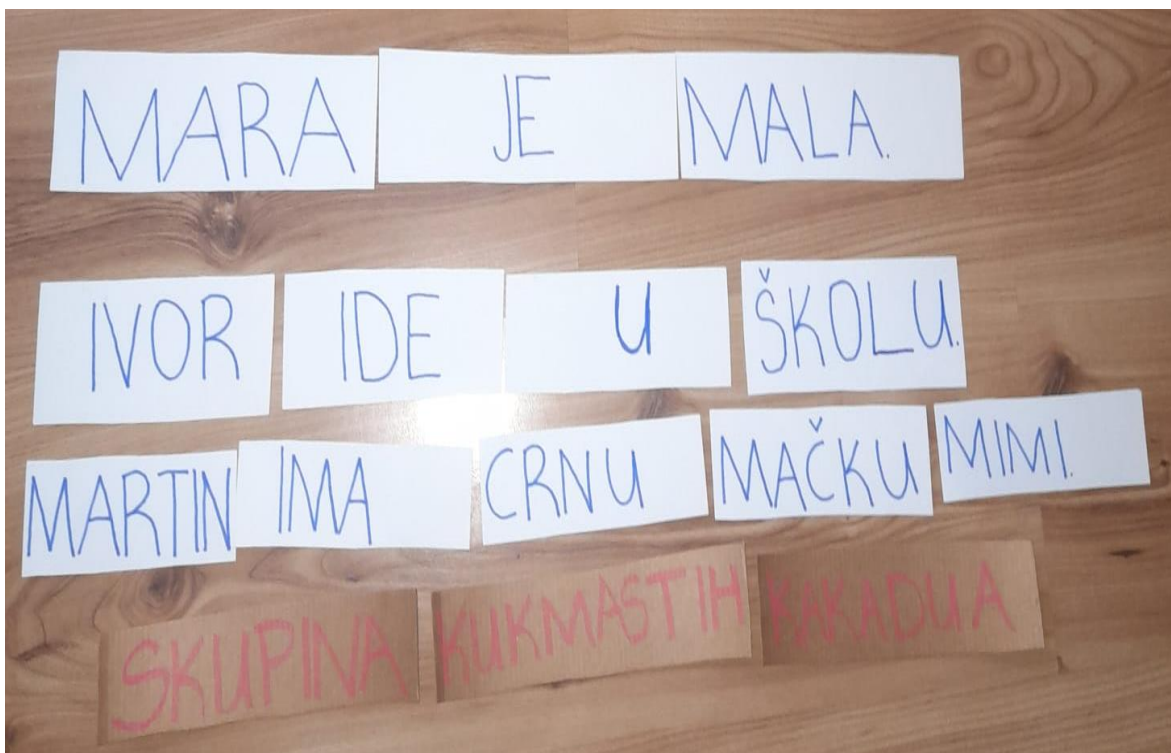 MARA JE MALA.
IVOR IDE U ŠKOLU.
MARTIN IMA CRNU MAČKU MIMI.
SKUPINA KUKMASTIH KAKADUA